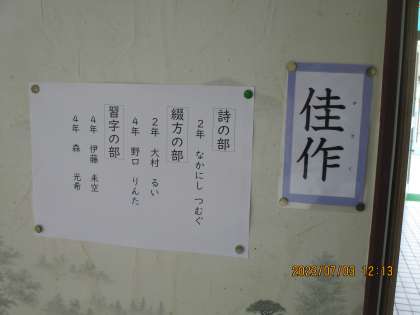 佳作
詩の部
2年 なかにし つむぐ
綴方の部
2年 大村 るい
4年 野口 りんた
習字の部
4年 伊藤 来空
4年 森 光希
2023/07/03 12:13